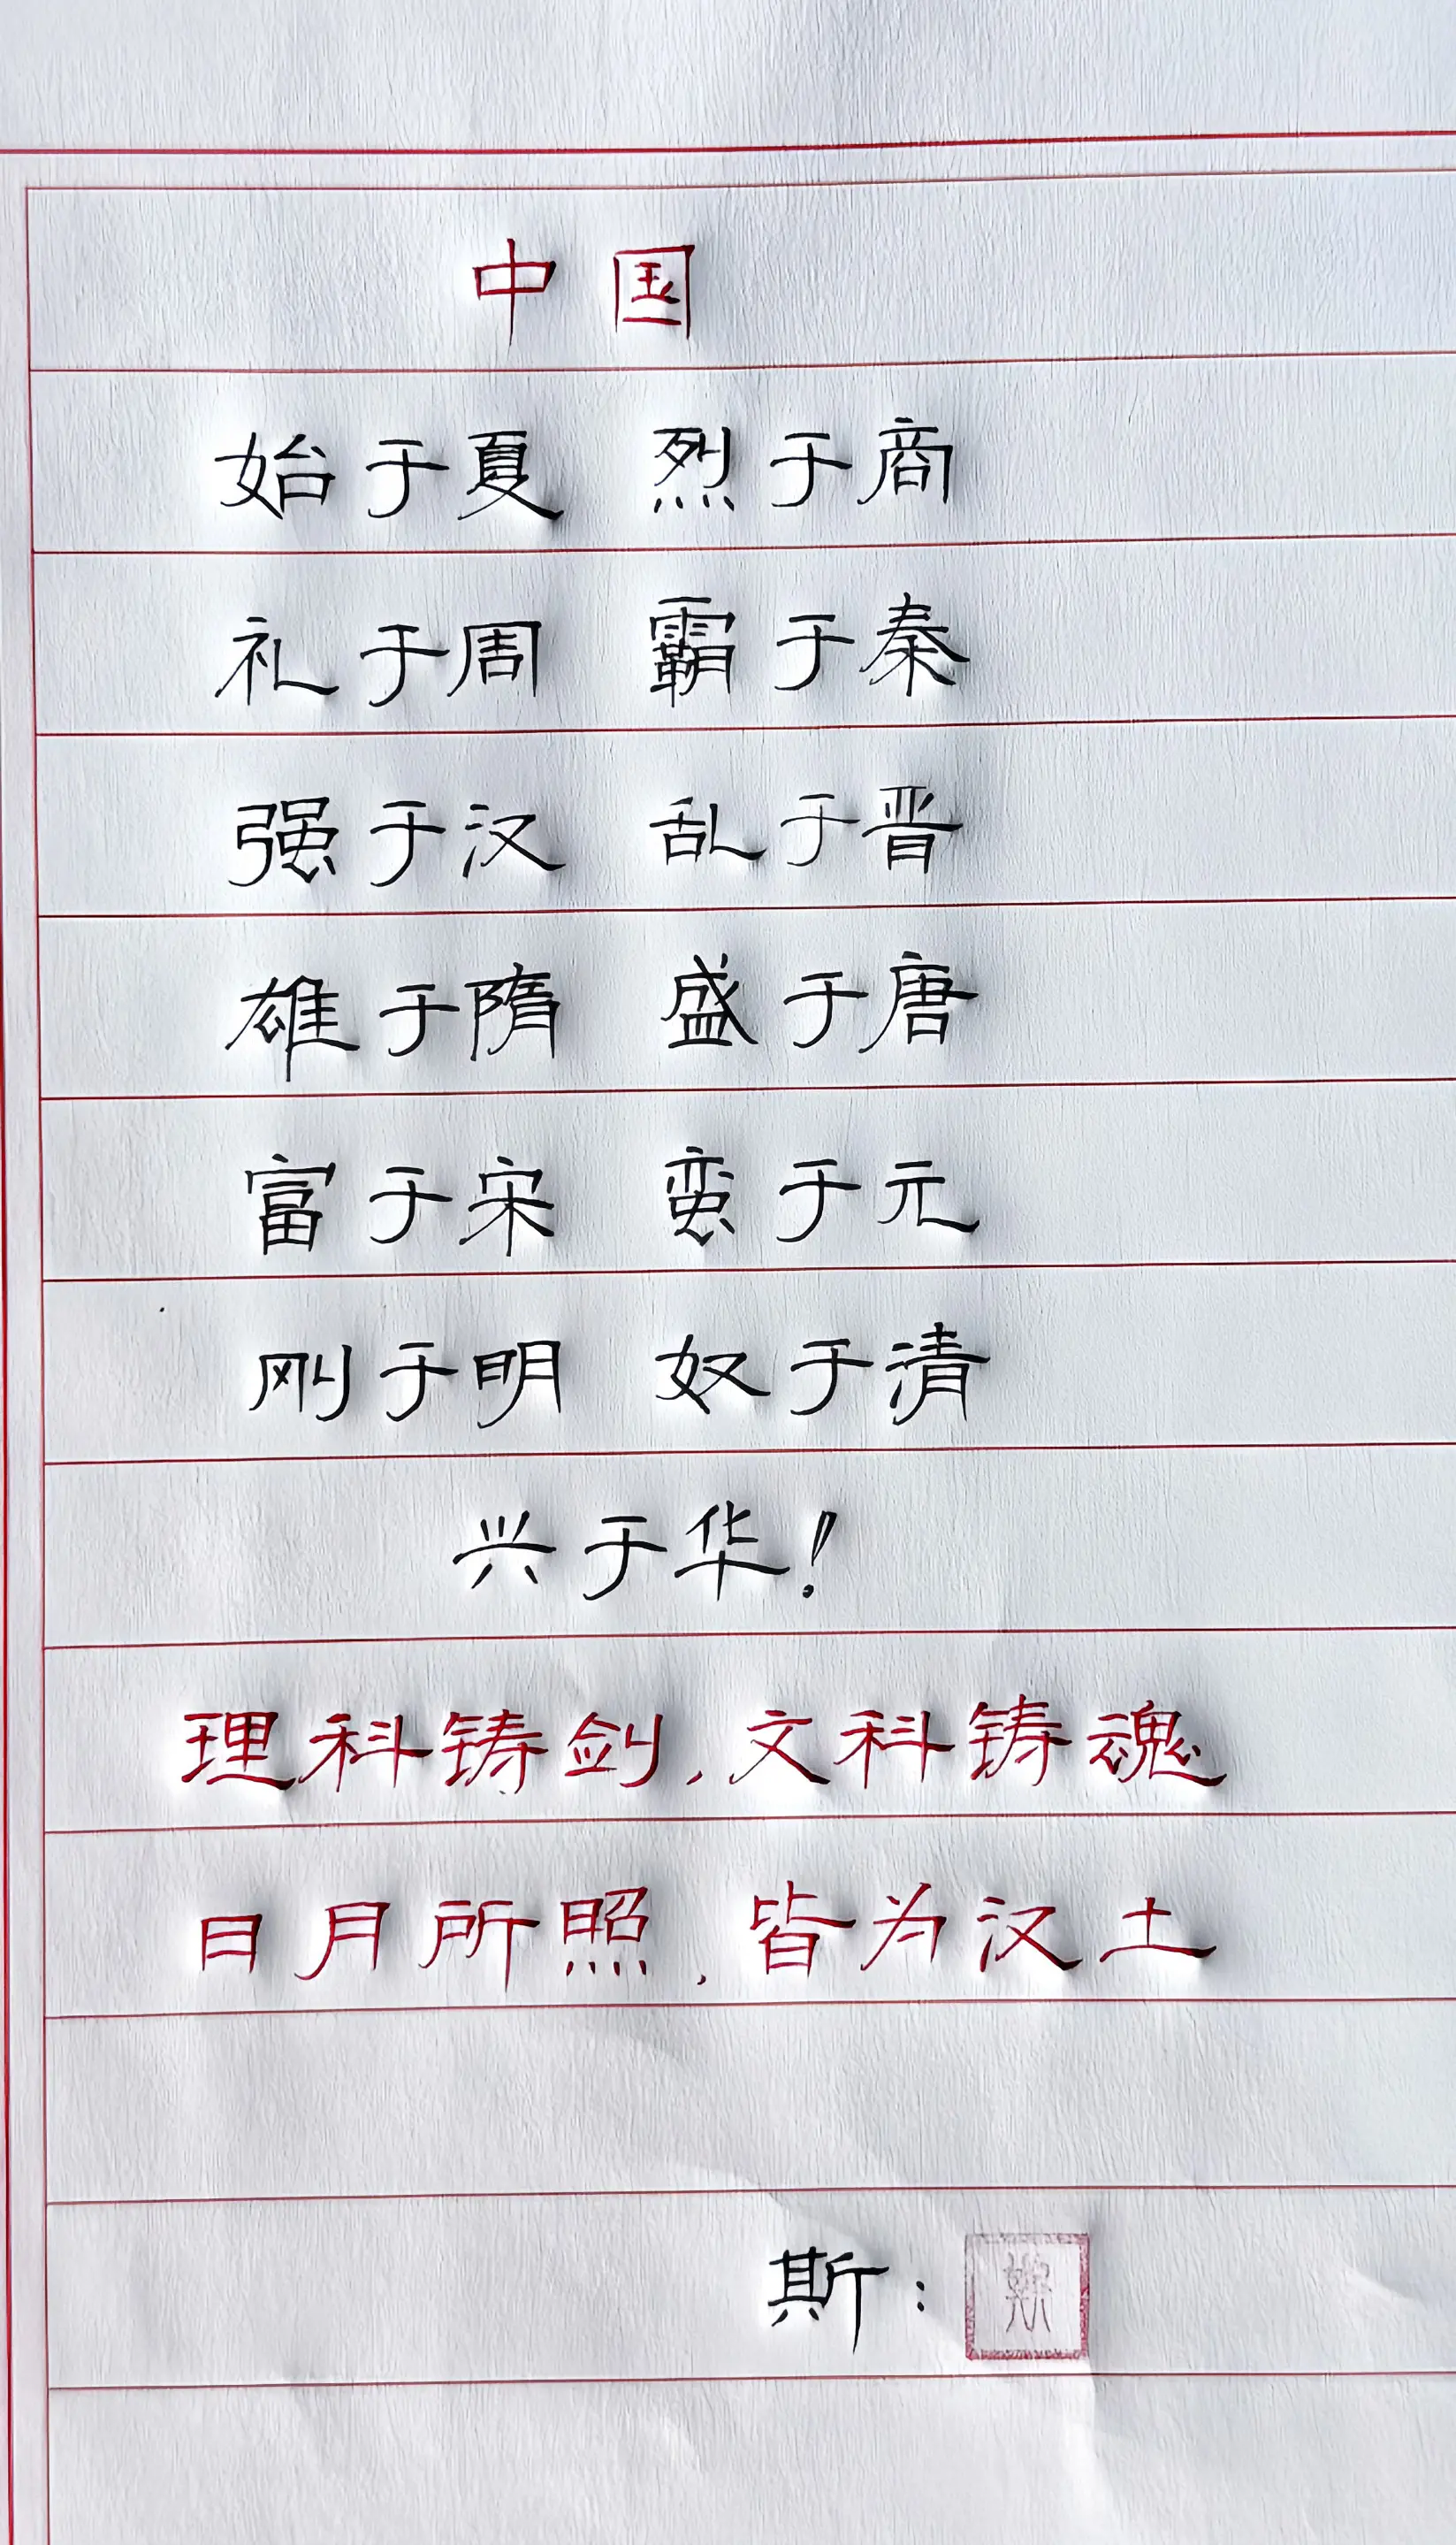 中国
始于夏 烈于商
礼于周 霸于秦
强于汉 乱于晋
雄于隋 盛于唐
富于宋 蛮于元
刚于明 奴于清
兴于华!
理科铸剑,文科铸魂
日月所照,皆为汉土
斯: